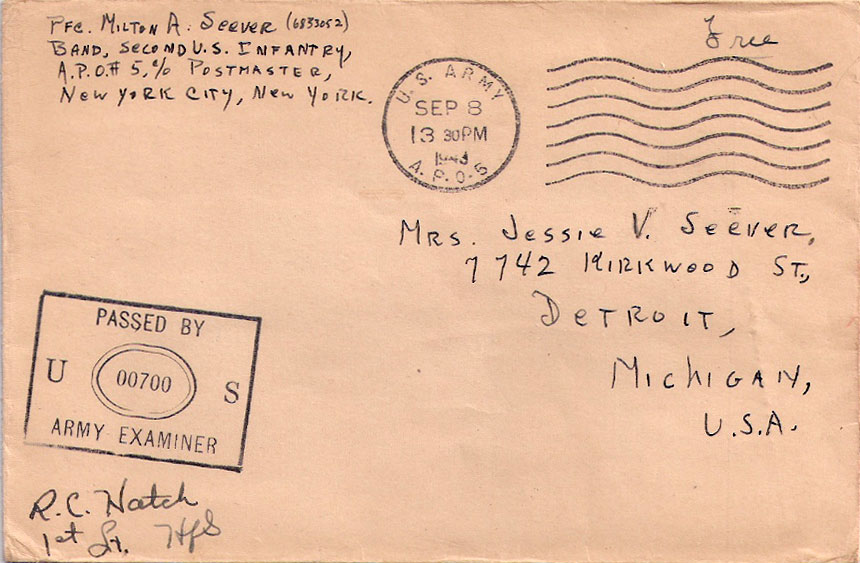 Pfc. Milton A. Seever (6833052)
Band, Second U.S. Infantry,
A.P.O.# 5, c/o Postmaster,
New York City, New York.
Free
U.S. ARMY
SEP 8
13 30PM
1943
A.P.O. 5
Mrs. Jessie V. Seever,
7742 Kirkwood St.,
Detroit,
Michigan,
U.S.A.
PASSED BY
U 00700 S
ARMY EXAMINER
R.C. Hatch
1st Lt.